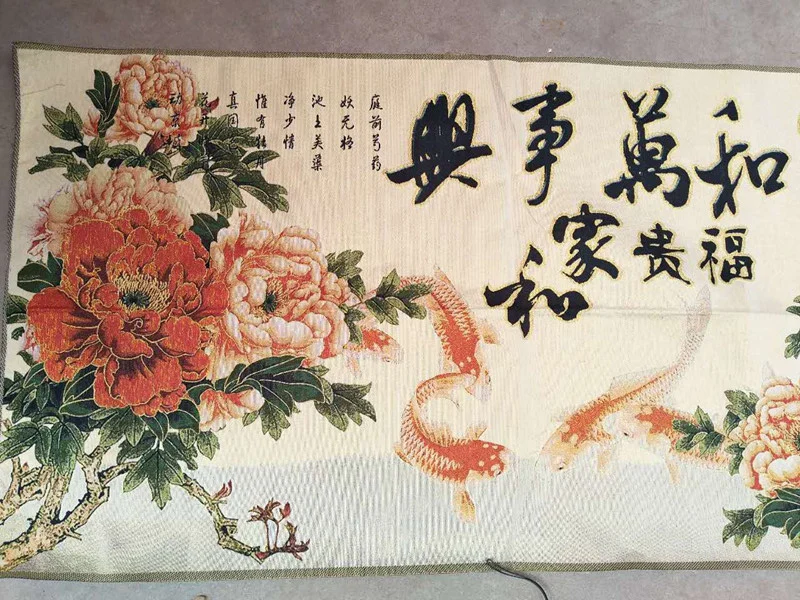 和萬事興
福贵
家和
庭前芍药
妖无格
池上芙蕖
净少情
惟有牡丹
真国
动京